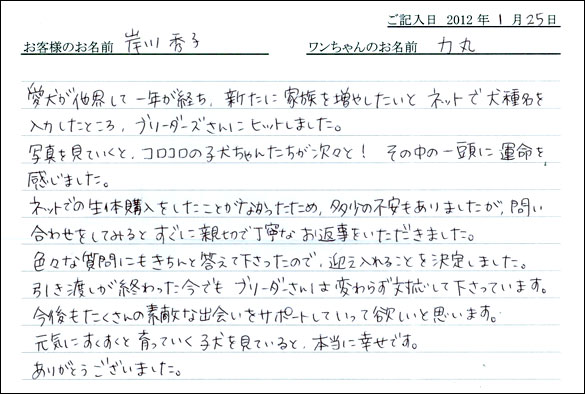 ご記入日 2012年1月25日
お客様のお名前 岸川 秀子 ワンちゃんのお名前 力丸
愛犬が他界して一年が経ち、新たに家族を増やしたいとネットで犬種名を
入力したところ、ブリーダーズさんにヒットしました。
写真を見ていくと、コロコロの子犬ちゃんたちが次々と! その中の一頭に運命を
感じました。
ネットでの生体購入をしたことがなかったため、多少の不安もありましたが、問い
合わせをしてみるとすぐに親切で丁寧なお返事をいただきました。
色々な質問にもきちんと答えて下さったので、迎え入れることを決定しました。
引き渡しが終わった今でもブリーダーさんは変わらず対応して下さっています。
今後もたくさんの素敵な出会いをサポートしていって欲しいと思います。
元気にすくすくと育っていく子犬を見ていると、本当に幸せです。
ありがとうございました。